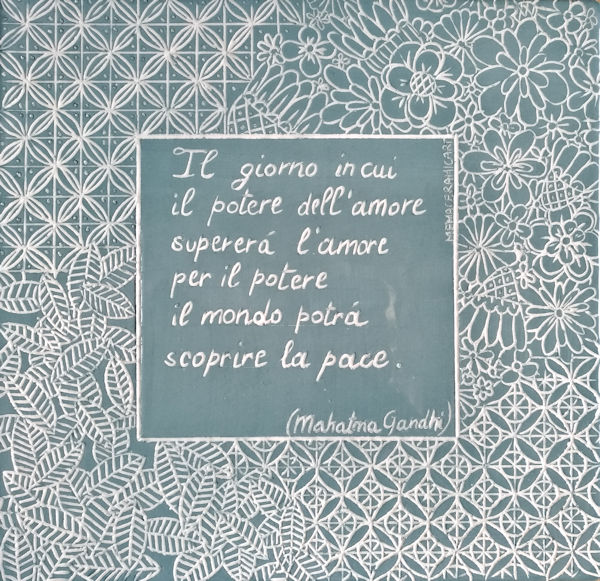 Il giorno in cui
il potere dell'amore
supererá l'amore
per il potere
il mondo potrá
scoprire la pace.
(Mahatma Gandhi)